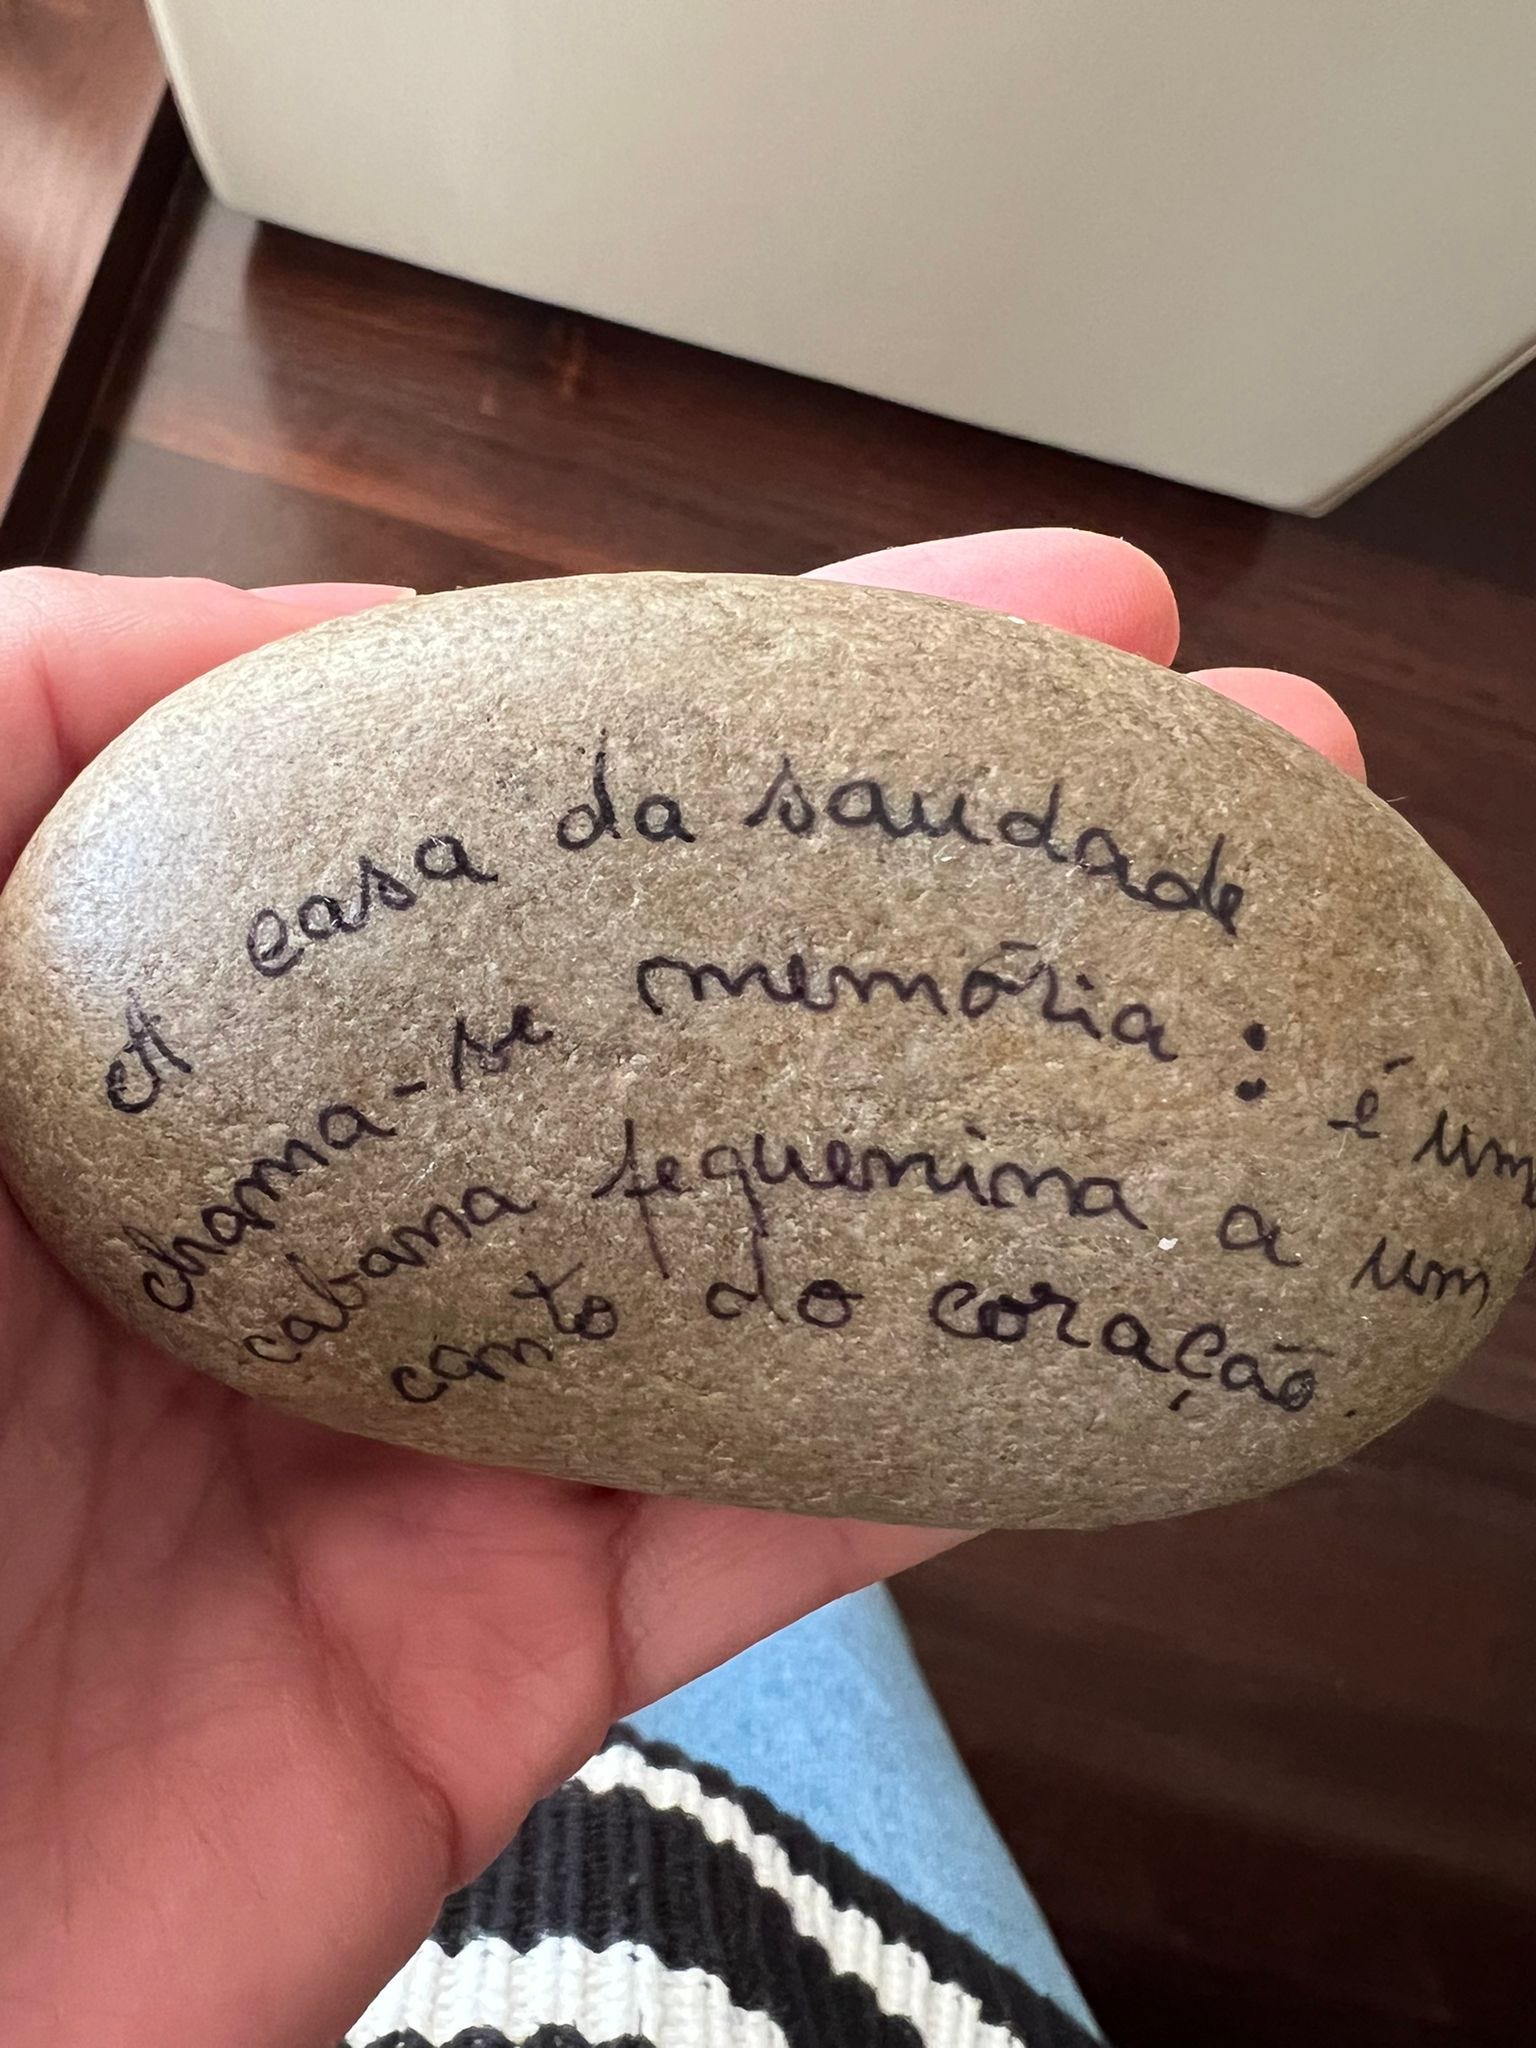 A casa da saudade
chama-se memória: é uma
cabana pequenina a um
canto do coração.